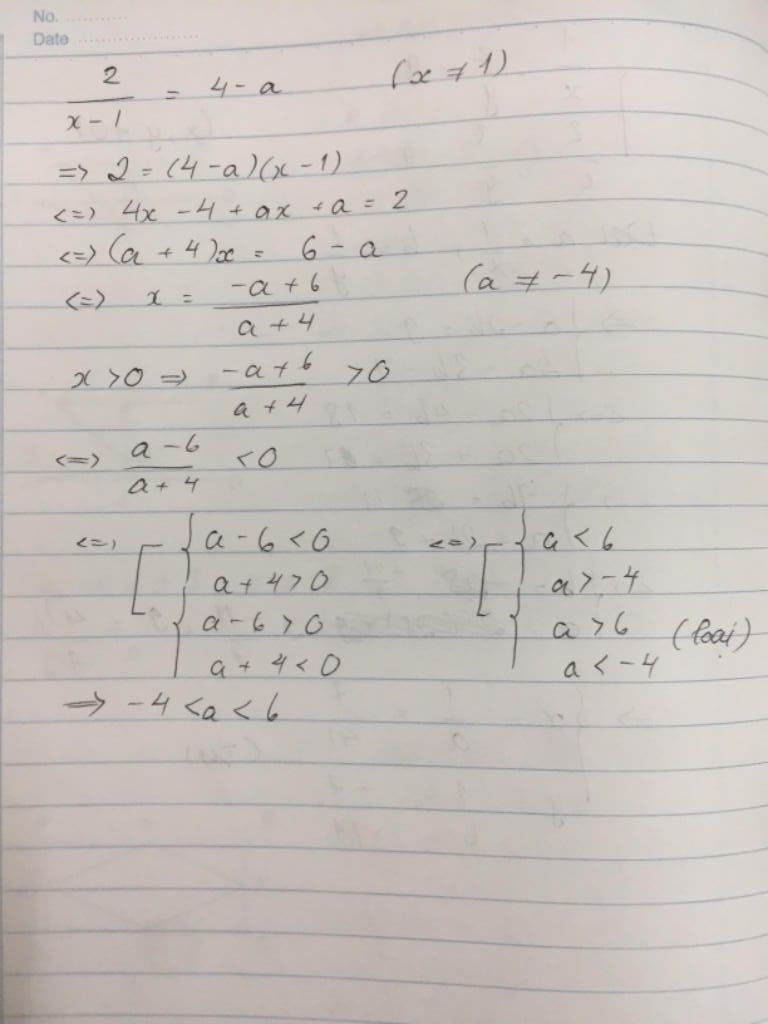 No. ............
Date ........................
2/(x - 1) = 4 - a (x ≠ 1)
=> 2 = (4 - a)(x - 1)
<=> 4x - 4 + ax + a = 2
<=> (a + 4)x = 6 - a
<=> x = (-a + 6)/(a + 4) (a ≠ -4)
x > 0 => (-a + 6)/(a + 4) > 0
<=> (a - 6)/(a + 4) < 0
<=> [ { a - 6 < 0 <=> [ { a < 6
a + 4 > 0 a > -4
{ a - 6 > 0 { a > 6 (loại)
a + 4 < 0 a < -4
=> -4 < a < 6